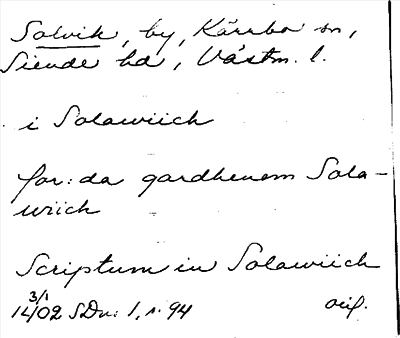 Solvik, by, Kärrbo sn,
Siende hd, Västm. l.
i Solawiich
for:da gardhenom Sola-
wiich
Scriptum in Solawiich
3/1
1402 SDn: 1, s. 94 orig.